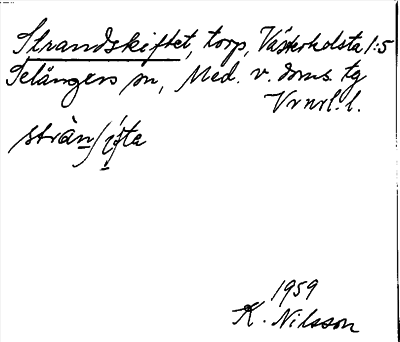 Strandskiftet, torp, Västerkolsta 1:5
Selångers sn, Med. v. doms. tg
Vrnrl. l.
stràn/ı̣fta
1959
K. Nilsson